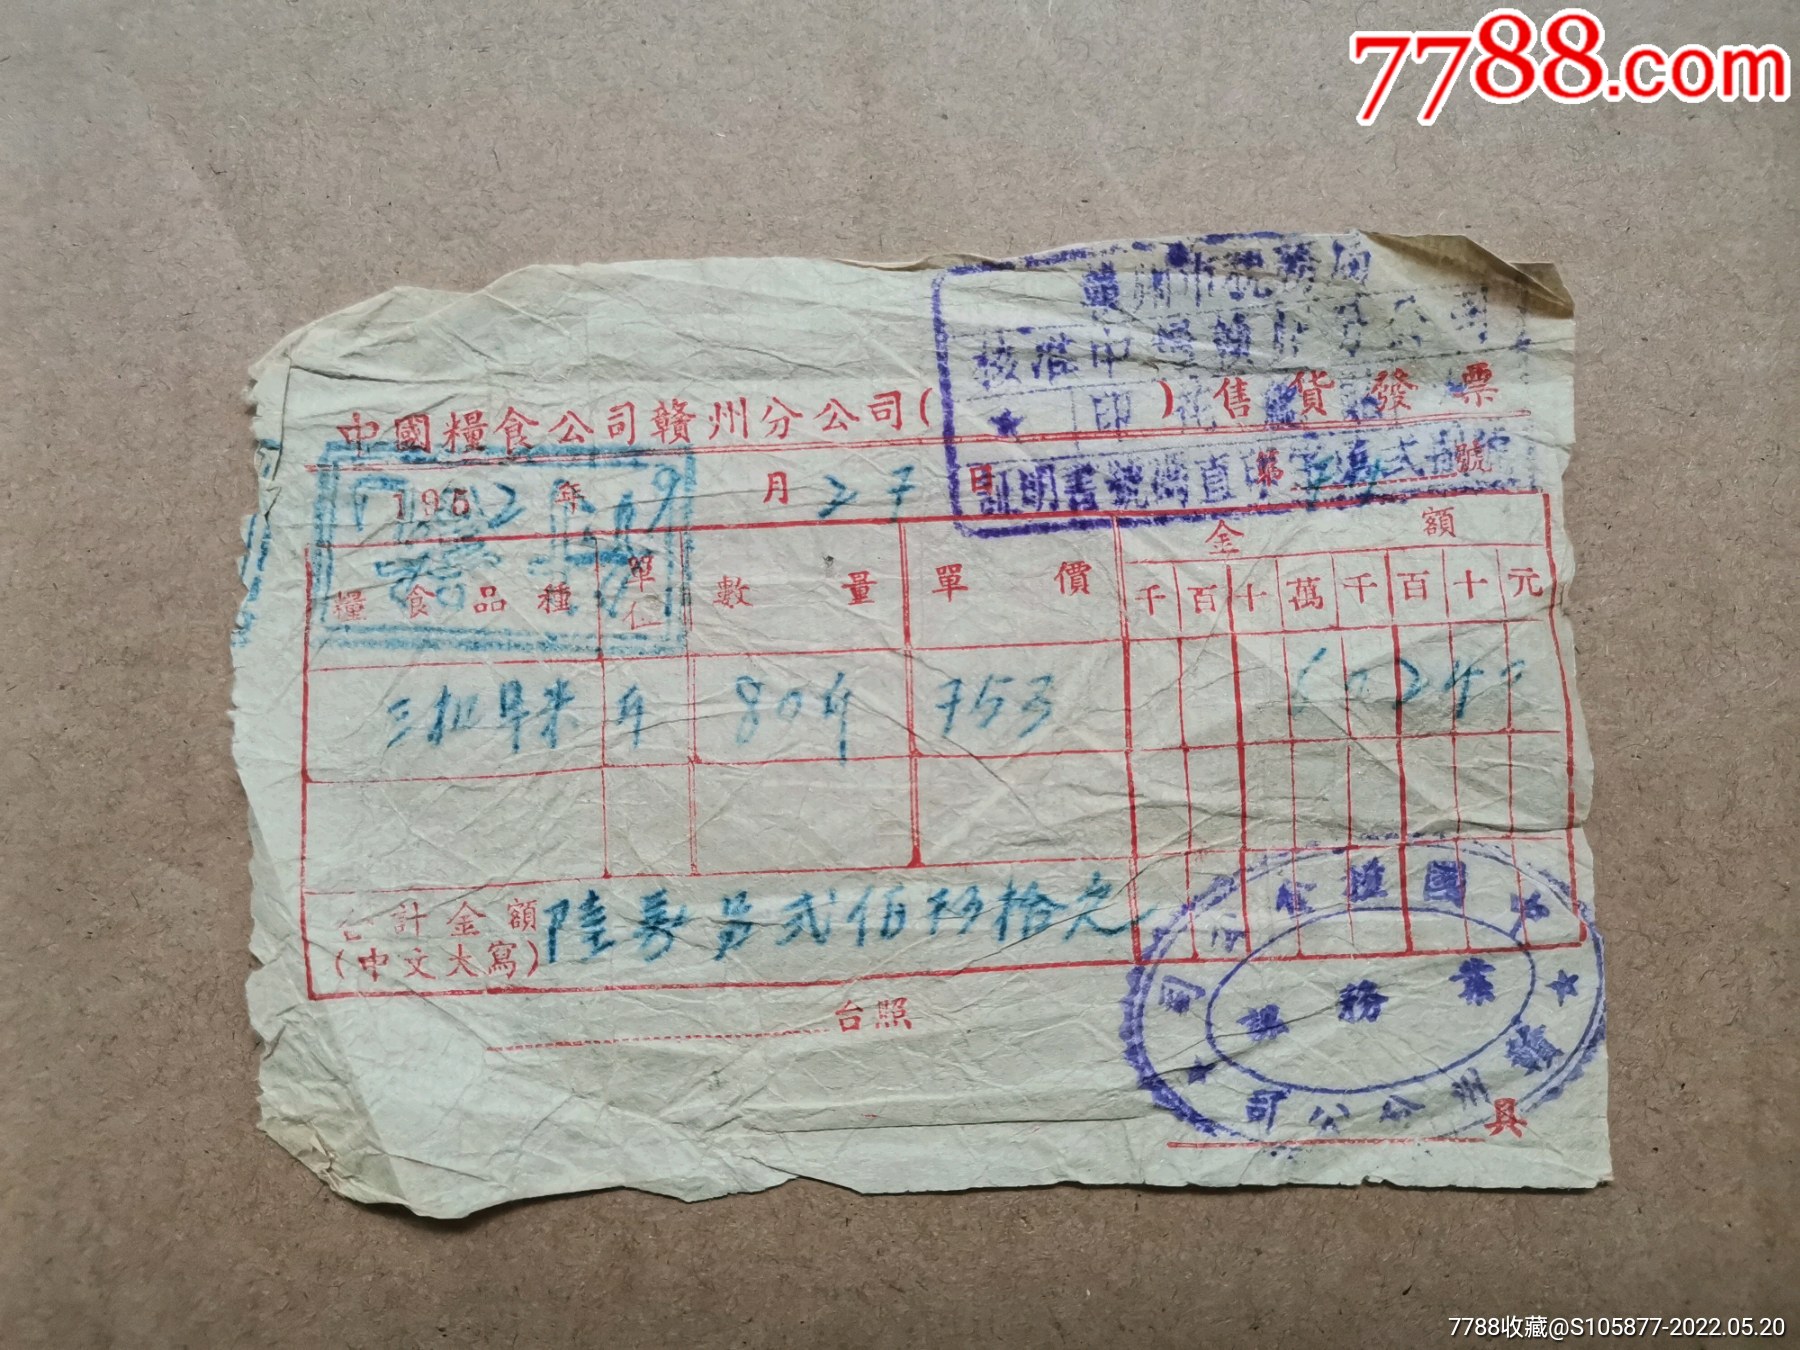 7788.com
贛州市税務局
核准中國糧食分公司
★ 印花
中國糧食公司贛州分公司( )售貨發票
1952年9月27日 第 號
糧食品種 單位 數量 單價 金額
千 百 十 萬 千 百 十 元
三机早米 斤 80斤 753 60240
合計金額 陸萬另弍佰肆拾元
(中文大寫)
台照
中國糧食公司
業務課
★ 贛州分公司 ★
具
7788收藏@S105877-2022.05.20